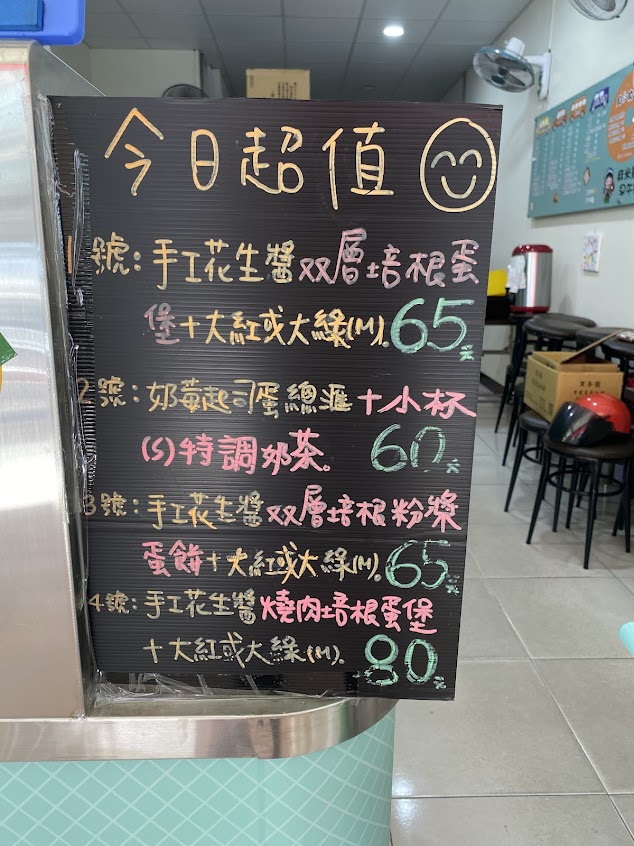 今日超值
1號:手工花生醬双層培根蛋
堡+大紅或大綠(M)。65元
2號:奶莓起司蛋總滙+小杯
(S)特調奶茶。60元
3號:手工花生醬双層培根粉漿
蛋餅+大紅或大綠(M)。65元
4號:手工花生醬燒肉培根蛋堡
+大紅或大綠(M)。80元